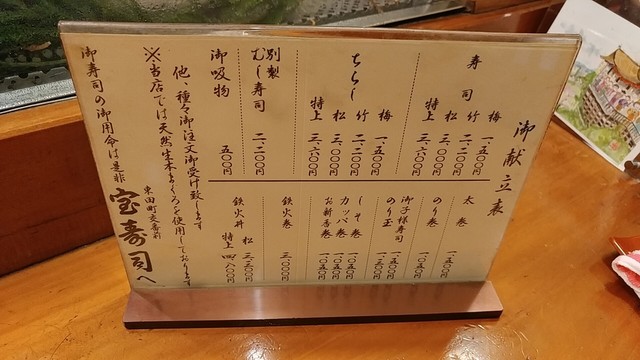 御献立表
寿司
梅 一、五〇〇円
竹 二、二〇〇円
松 三、〇〇〇円
特上 三、六〇〇円
ちらし
梅 一、五〇〇円
竹 二、二〇〇円
松 三、〇〇〇円
特上 三、六〇〇円
別製
むし寿司 二、二〇〇円
御吸物 五〇〇円
太巻 一、五〇〇円
のり巻 一、〇五〇円
御子様寿司 一、五〇〇円
のり玉 一、三五〇円
しそ巻 一、〇五〇円
カッパ巻 一、〇五〇円
お新香巻 一、〇五〇円
鉄火巻 三、〇〇〇円
鉄火丼
松 三、三〇〇円
特上 四、八〇〇円
他、種々御注文御受け致します
※当店では天然生本まぐろを使用しております
御寿司の御用命は是非
東田町交番前
宝寿司へ